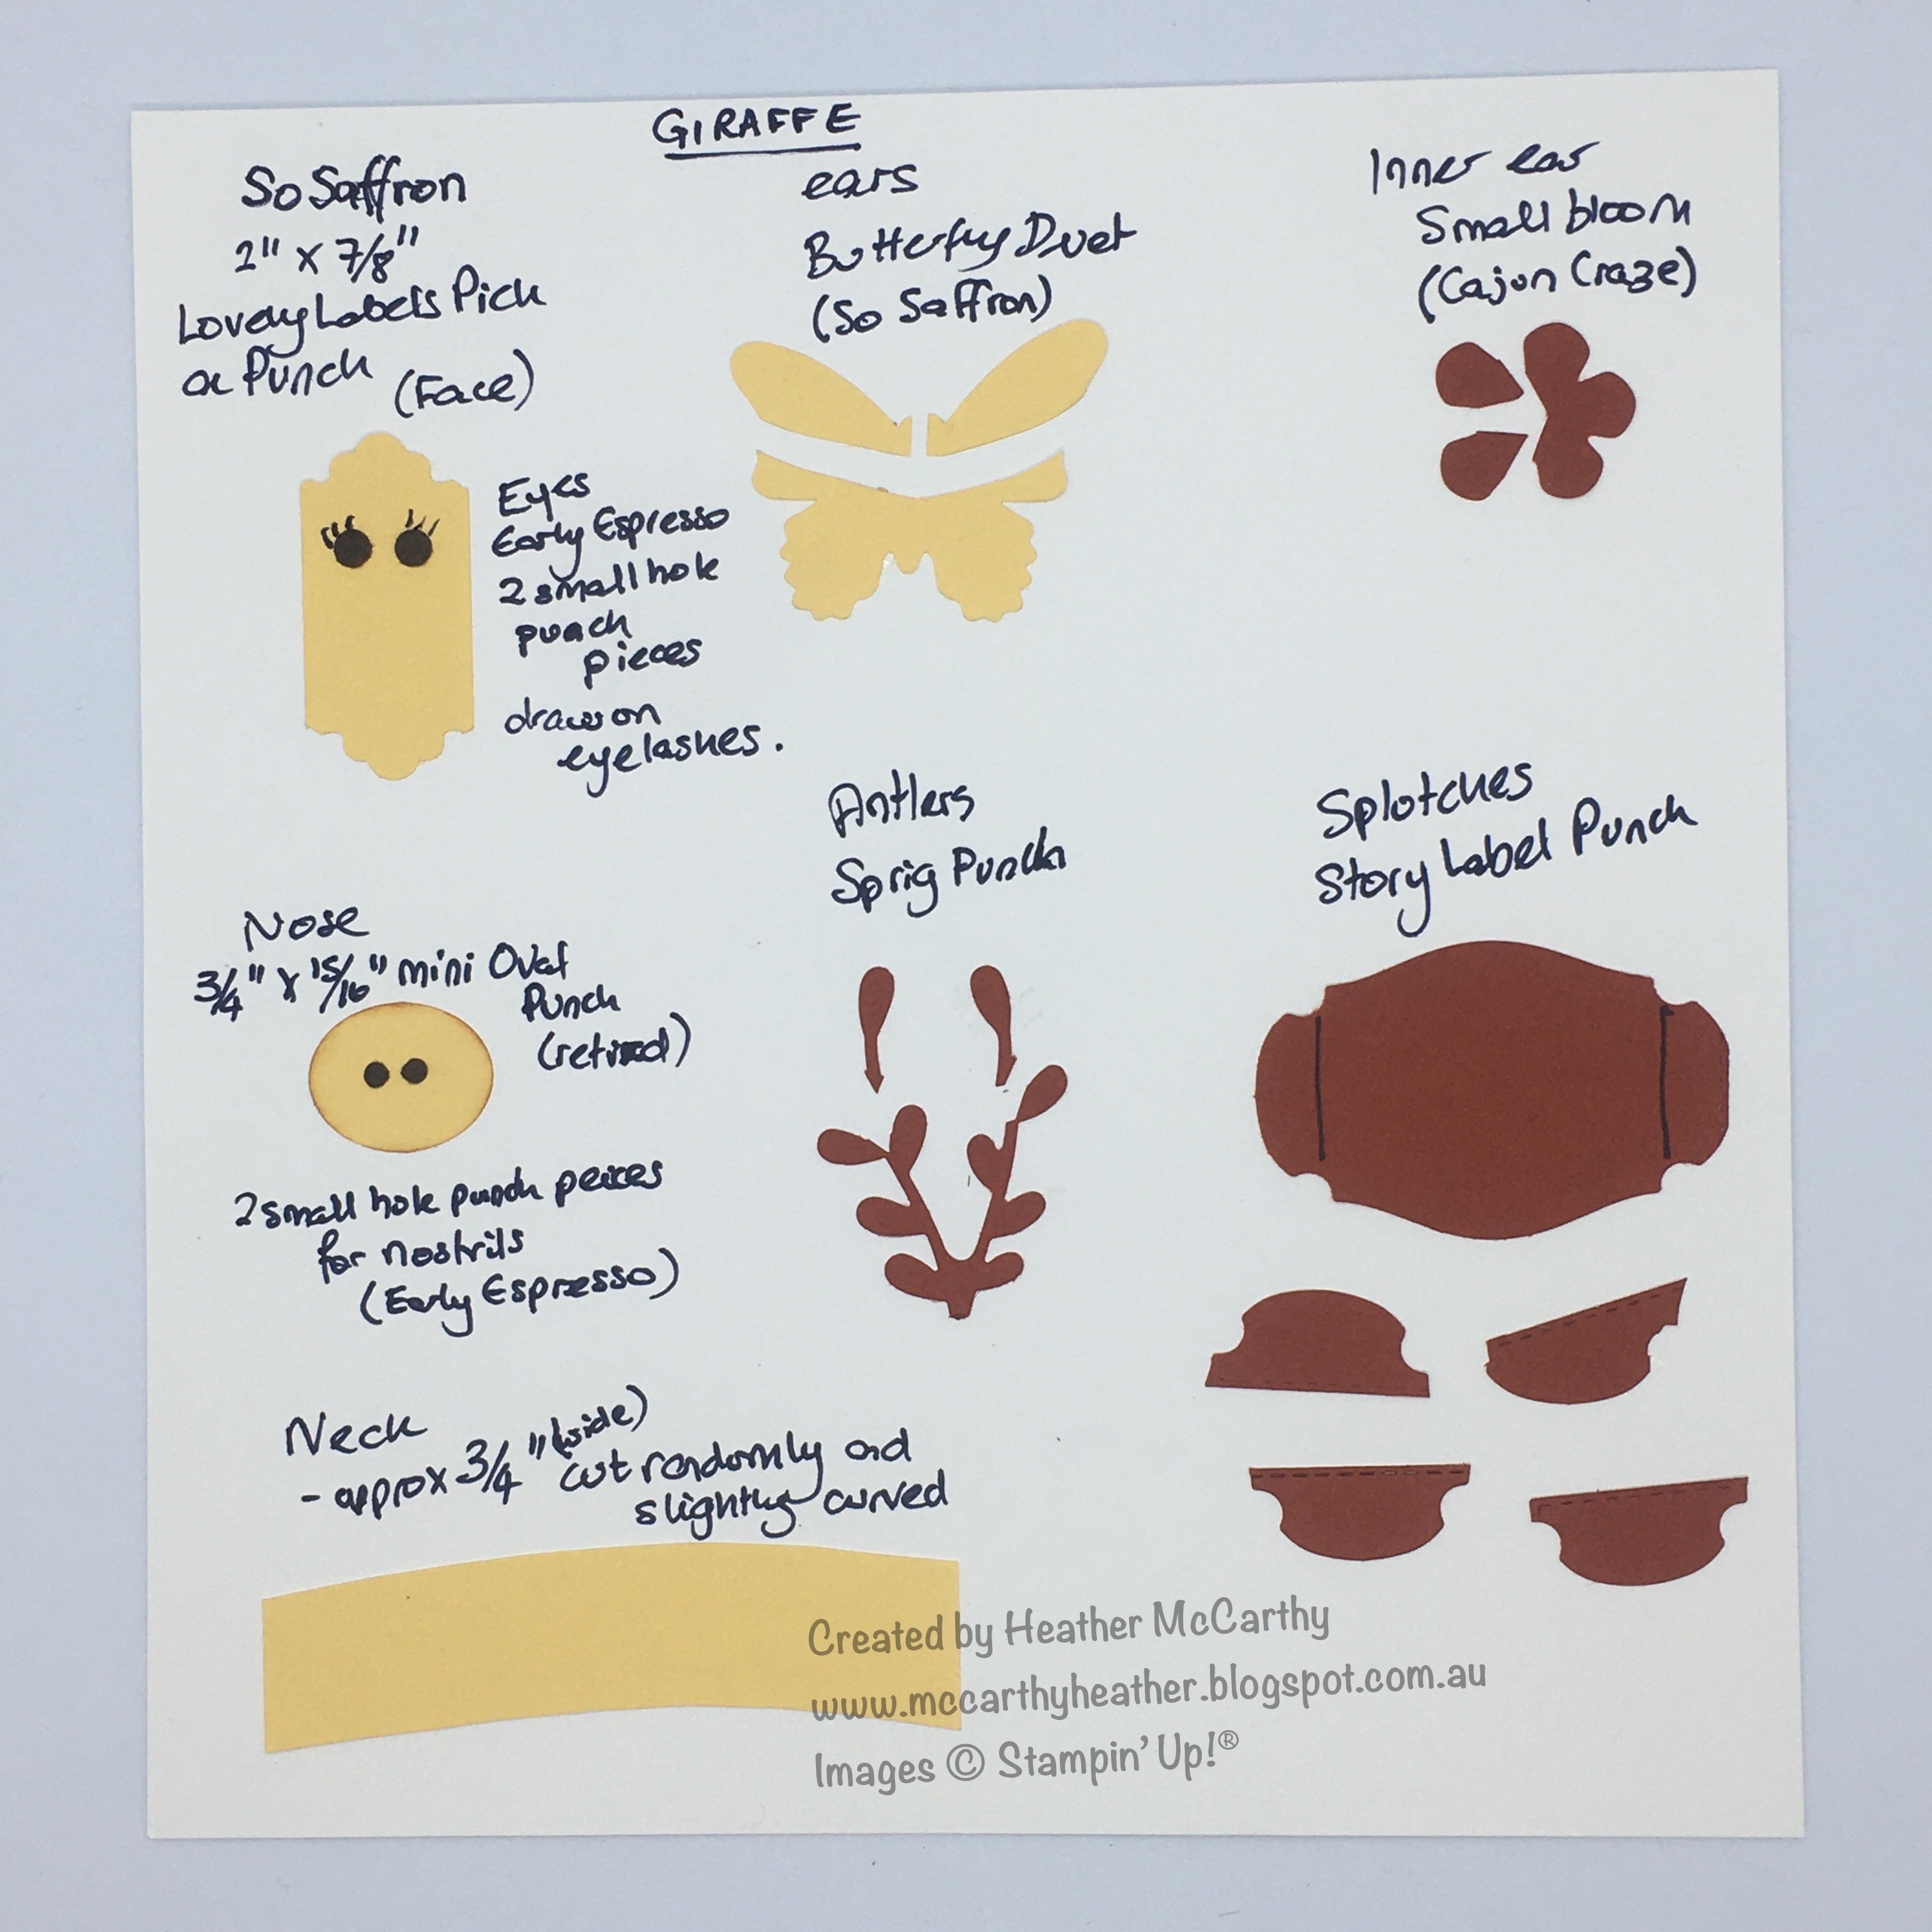 GIRAFFE
So Saffron
2" x 7/8"
Lovely Labels Pick
a Punch (Face)
ears
Butterfly Duet
(So Saffron)
Inner ear
Small bloom
(Cajun Craze)
Eyes
Early Espresso
2 small hole
punch
pieces
draw on
eyelashes.
Nose
3/4" x 15/16" mini Oval
Punch
(retired)
2 small hole punch peices
for nostrils
(Early Espresso)
Antlers
Sprig Punch
Splotches
Story Label Punch
Neck
- approx 3/4" (wide) cut randomly and
slightly curved
Created by Heather McCarthy
www.mccarthyheather.blogspot.com.au
Images © Stampin' Up!®